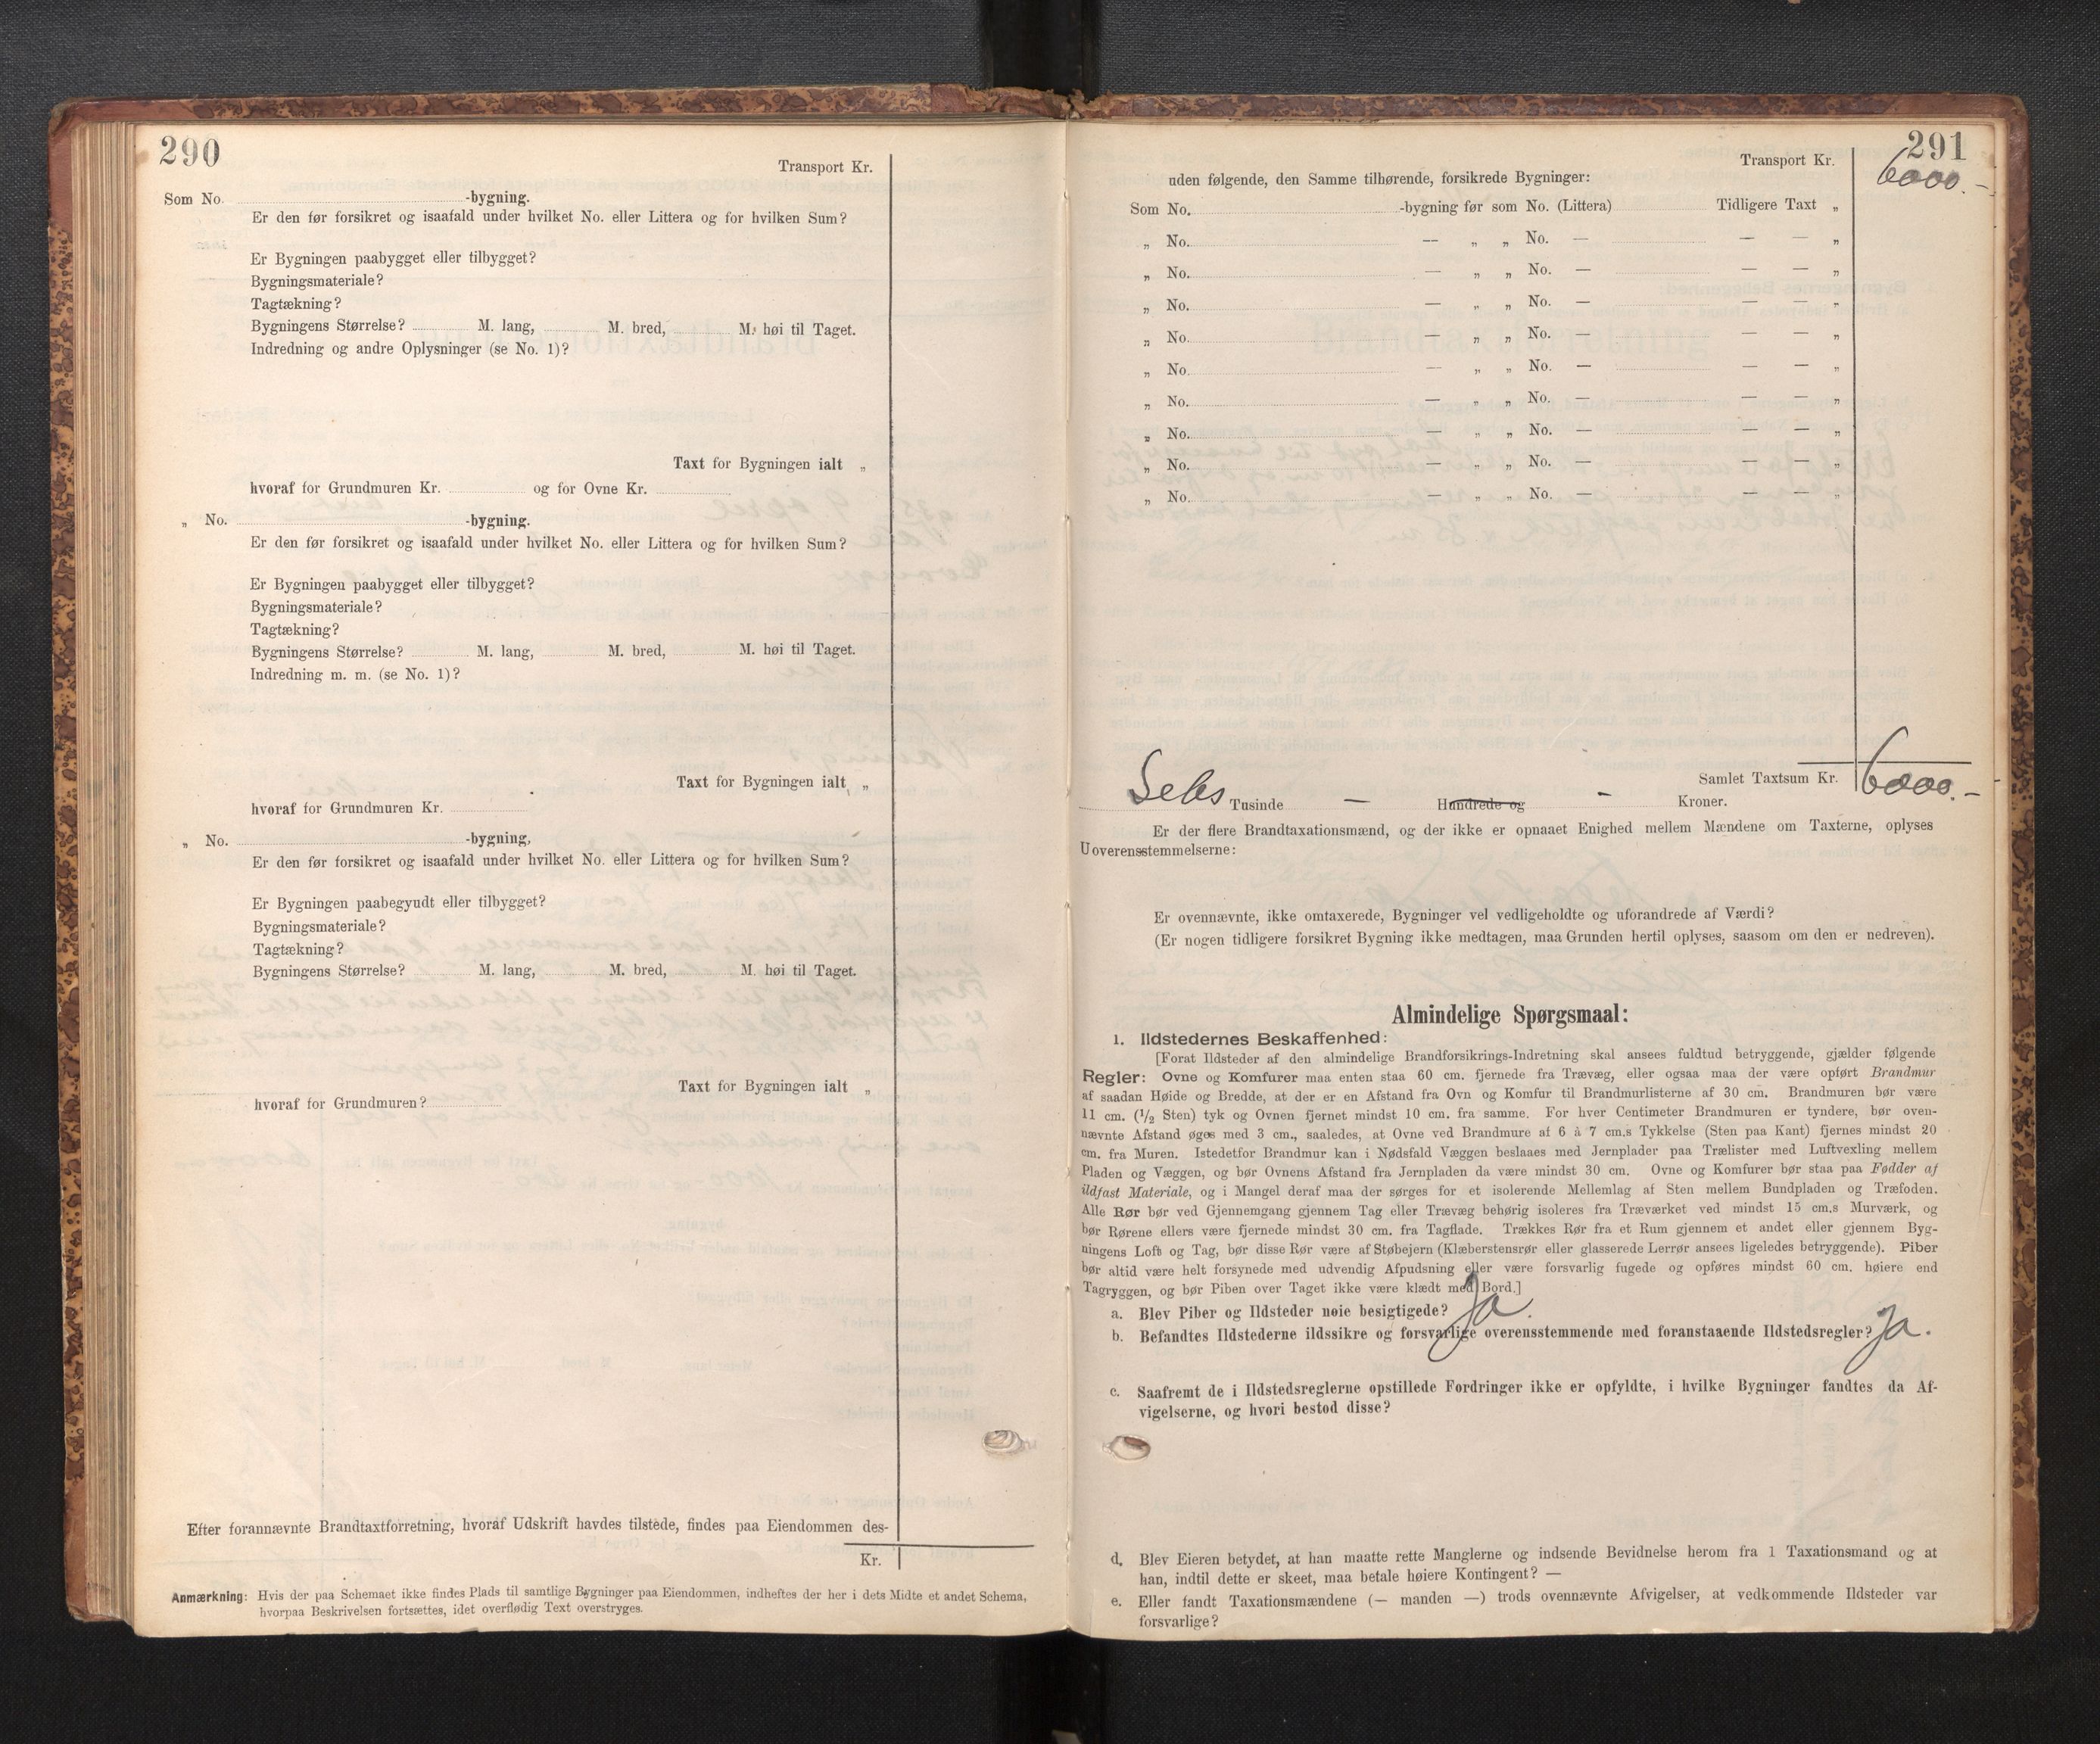 290
Transport Kr.
Som No. -bygning.
Er den før forsikret og isaafald under hvilket No. eller Littera og for hvilken Sum?
Er Bygningen paabygget eller tilbygget?
Bygningsmateriale?
Tagtækning?
Bygningens Størrelse? M. lang, M. bred, M. høi til Taget.
Indredning og andre Oplysninger (se No. 1)?
Taxt for Bygningen ialt „
hvoraf for Grundmuren Kr. og for Ovne Kr.
„ No. -bygning.
Er den før forsikret og isaafald under hvilket No. eller Littera og for hvilken Sum?
Er Bygningen paabygget eller tilbygget?
Bygningsmateriale?
Tagtækning?
Bygningens Størrelse? M. lang, M. bred, M. høi til Taget.
Indredning m. m. (se No. 1)?
Taxt for Bygningen ialt „
hvoraf for Grundmuren Kr.
„ No. -bygning,
Er den før forsikret og isaafald under hvilket No. eller Littera og for hvilken Sum?
Er Bygningen paabegyudt eller tilbygget?
Bygningsmateriale?
Tagtækning?
Bygningens Størrelse? M. lang, M. bred, M. høi til Taget.
Taxt for Bygningen ialt „
hvoraf for Grundmuren?
Efter forannævnte Brandtaxtforretning, hvoraf Udskrift havdes tilstede, findes paa Eiendommen des-
Kr.
Anmærkning: Hvis der paa Schemaet ikke findes Plads til samtlige Bygninger paa Eiendommen, indheftes der her i dets Midte et andet Schema,
hvorpaa Beskrivelsen fortsættes, idet overflødig Text overstryges.
291
Transport Kr. 6000.–
uden følgende, den Samme tilhørende, forsikrede Bygninger:
Som No. -bygning før som No. (Littera) Tidligere Taxt „
„ No. — „ „ No. — — — „
„ No. — „ „ No. — — — „
„ No. — „ „ No. — — — „
„ No. — „ „ No. — — — „
„ No. — „ „ No. — — — „
„ No. — „ „ No. — — — „
„ No. — „ „ No. — — — „
„ No. — „ „ No. — — — „
„ No. — „ „ No. — — — „
Samlet Taxtsum Kr. 6000.–
Seks Tusinde — Hundrede og - Kroner.
Er der flere Brandtaxationsmænd, og der ikke er opnaaet Enighed mellem Mændene om Taxterne, oplyses
Uoverensstemmelserne:
Er ovennævnte, ikke omtaxerede, Bygninger vel vedligeholdte og uforandrede af Værdi?
(Er nogen tidligere forsikret Bygning ikke medtagen, maa Grunden hertil oplyses, saasom om den er nedreven).
Almindelige Spørgsmaal:
1. Ildstedernes Beskaffenhed:
[Forat Ildsteder af den almindelige Brandforsikrings-Indretning skal ansees fuldtud betryggende, gjælder følgende
Regler: Ovne og Komfurer maa enten staa 60 cm. fjernede fra Trævæg, eller ogsaa maa der være opført Brandmur
af saadan Høide og Bredde, at der er en Afstand fra Ovn og Komfur til Brandmurlisterne af 30 cm. Brandmuren bør være
11 cm. (1/2 Sten) tyk og Ovnen fjernet mindst 10 cm. fra samme. For hver Centimeter Brandmuren er tyndere, bør oven-
nævnte Afstand øges med 3 cm., saaledes, at Ovne ved Brandmure af 6 à 7 cm.s Tykkelse (Sten paa Kant) fjernes mindst 20
cm. fra Muren. Istedetfor Brandmur kan i Nødsfald Væggen beslaaes med Jernplader paa Trælister med Luftvexling mellem
Pladen og Væggen, og bør Ovnens Afstand fra Jernpladen da være mindst 30 cm. Ovne og Komfurer bør staa paa Fødder af
ildfast Materiale, og i Mangel deraf maa der sørges for et isolerende Mellemlag af Sten mellem Bundpladen og Træfoden.
Alle Rør bør ved Gjennemgang gjennem Tag eller Trævæg behørig isoleres fra Træværket ved mindst 15 cm.s Murværk, og
bør Rørene ellers være fjernede mindst 30 cm. fra Tagflade. Trækkes Rør fra et Rum gjennem et andet eller gjennem Byg-
ningens Loft og Tag, bør disse Rør være af Støbejern (Klæberstensrør eller glasserede Lerrør ansees ligeledes betryggende). Piber
bør altid være helt forsynede med udvendig Afpudsning eller være forsvarlig fugede og opføres mindst 60 cm. høiere end
Tagryggen, og bør Piben over Taget ikke være klædt med Bord.]
a. Blev Piber og Ildsteder nøie besigtigede? Ja.
b. Befandtes Ildstederne ildssikre og forsvarlige overensstemmende med foranstaaende Ildstedsregler? Ja.
c. Saafremt de i Ildstedsreglerne opstillede Fordringer ikke er opfyldte, i hvilke Bygninger fandtes da Af-
vigelserne, og hvori bestod disse?
d. Blev Eieren betydet, at han maatte rette Manglerne og indsende Bevidnelse herom fra 1 Taxationsmand og at
han, indtil dette er skeet, maa betale høiere Kontingent? —
e. Eller fandt Taxationsmændene (— manden —) trods ovennævnte Afvigelser, at vedkommende Ildsteder var
forsvarlige?